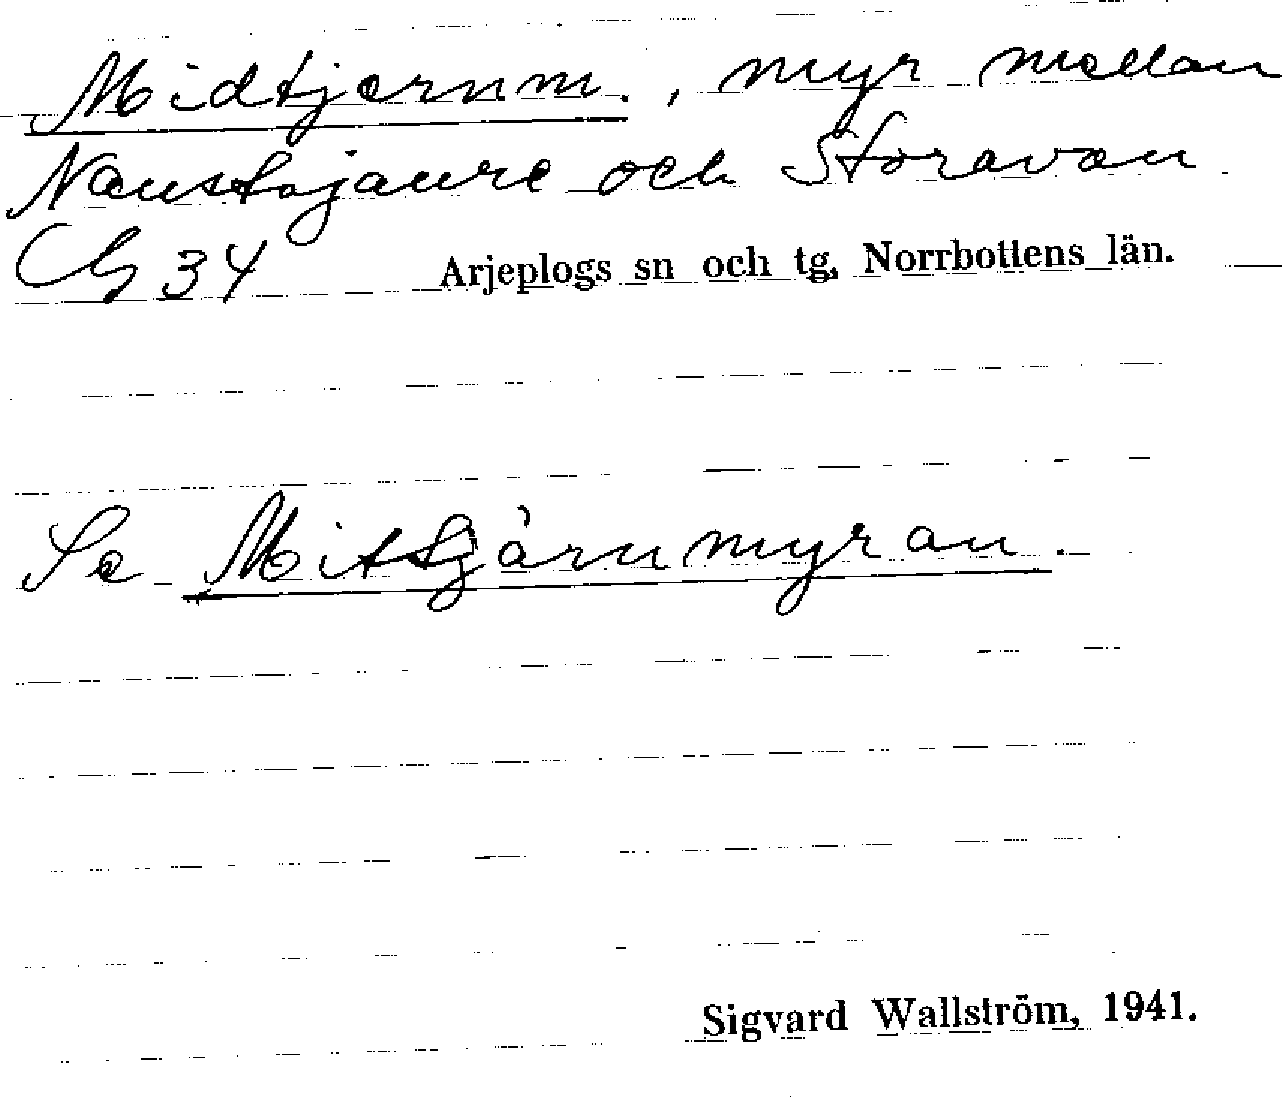 Midtjernm., myr mellan
Naustajaure och Storavan.
G 34 Arjeplogs sn och tg, Norrbottens län.
Se Mittjärnmyran.
Sigvard Wallström, 1941.